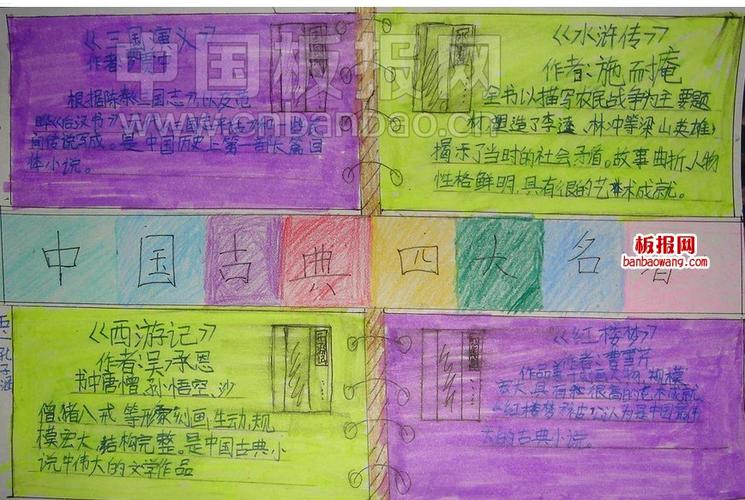 《三国演义》
作者:罗贯中
根据陈寿《三国志》以及范
晔《后汉书》
间传说写成。是中国历史上第一部长篇回
体小说。
《水浒传》
作者:施耐庵
全书以描写农民战争为主要题
材,塑造了李逵、林冲等梁山英雄,
揭示了当时的社会矛盾。故事曲折、人物
性格鲜明,具有很的艺术成就。
中国古典四大名著
板报网
banbaowang.com
《西游记》
作者:吴承恩
书中唐僧、孙悟空、沙
僧、猪八戒等形象刻画生动,规
模宏大,结构完整。是中国古典小
说中伟大的文学作品
《红楼梦》
作者:曹雪芹
规模
宏大,具有很高的艺术成就
红楼梦 公认为是中国最伟
大的古典小说。
中国板报网